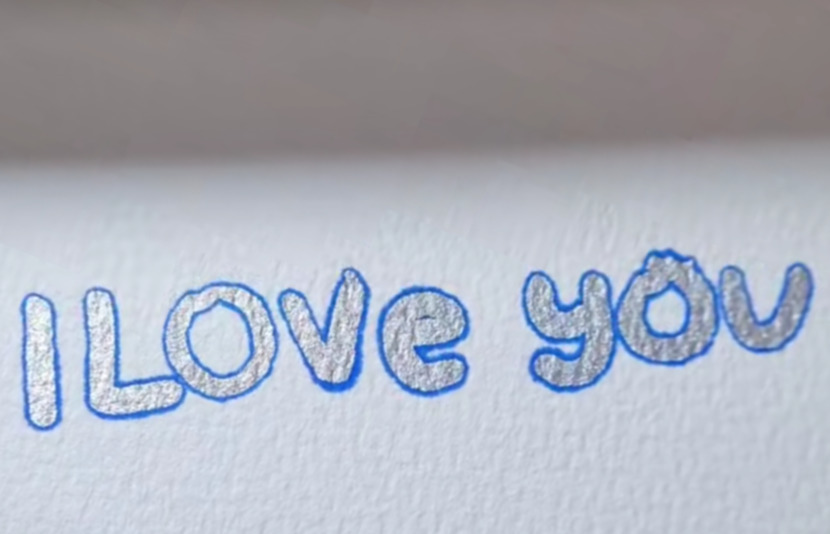 I LOVe yOU